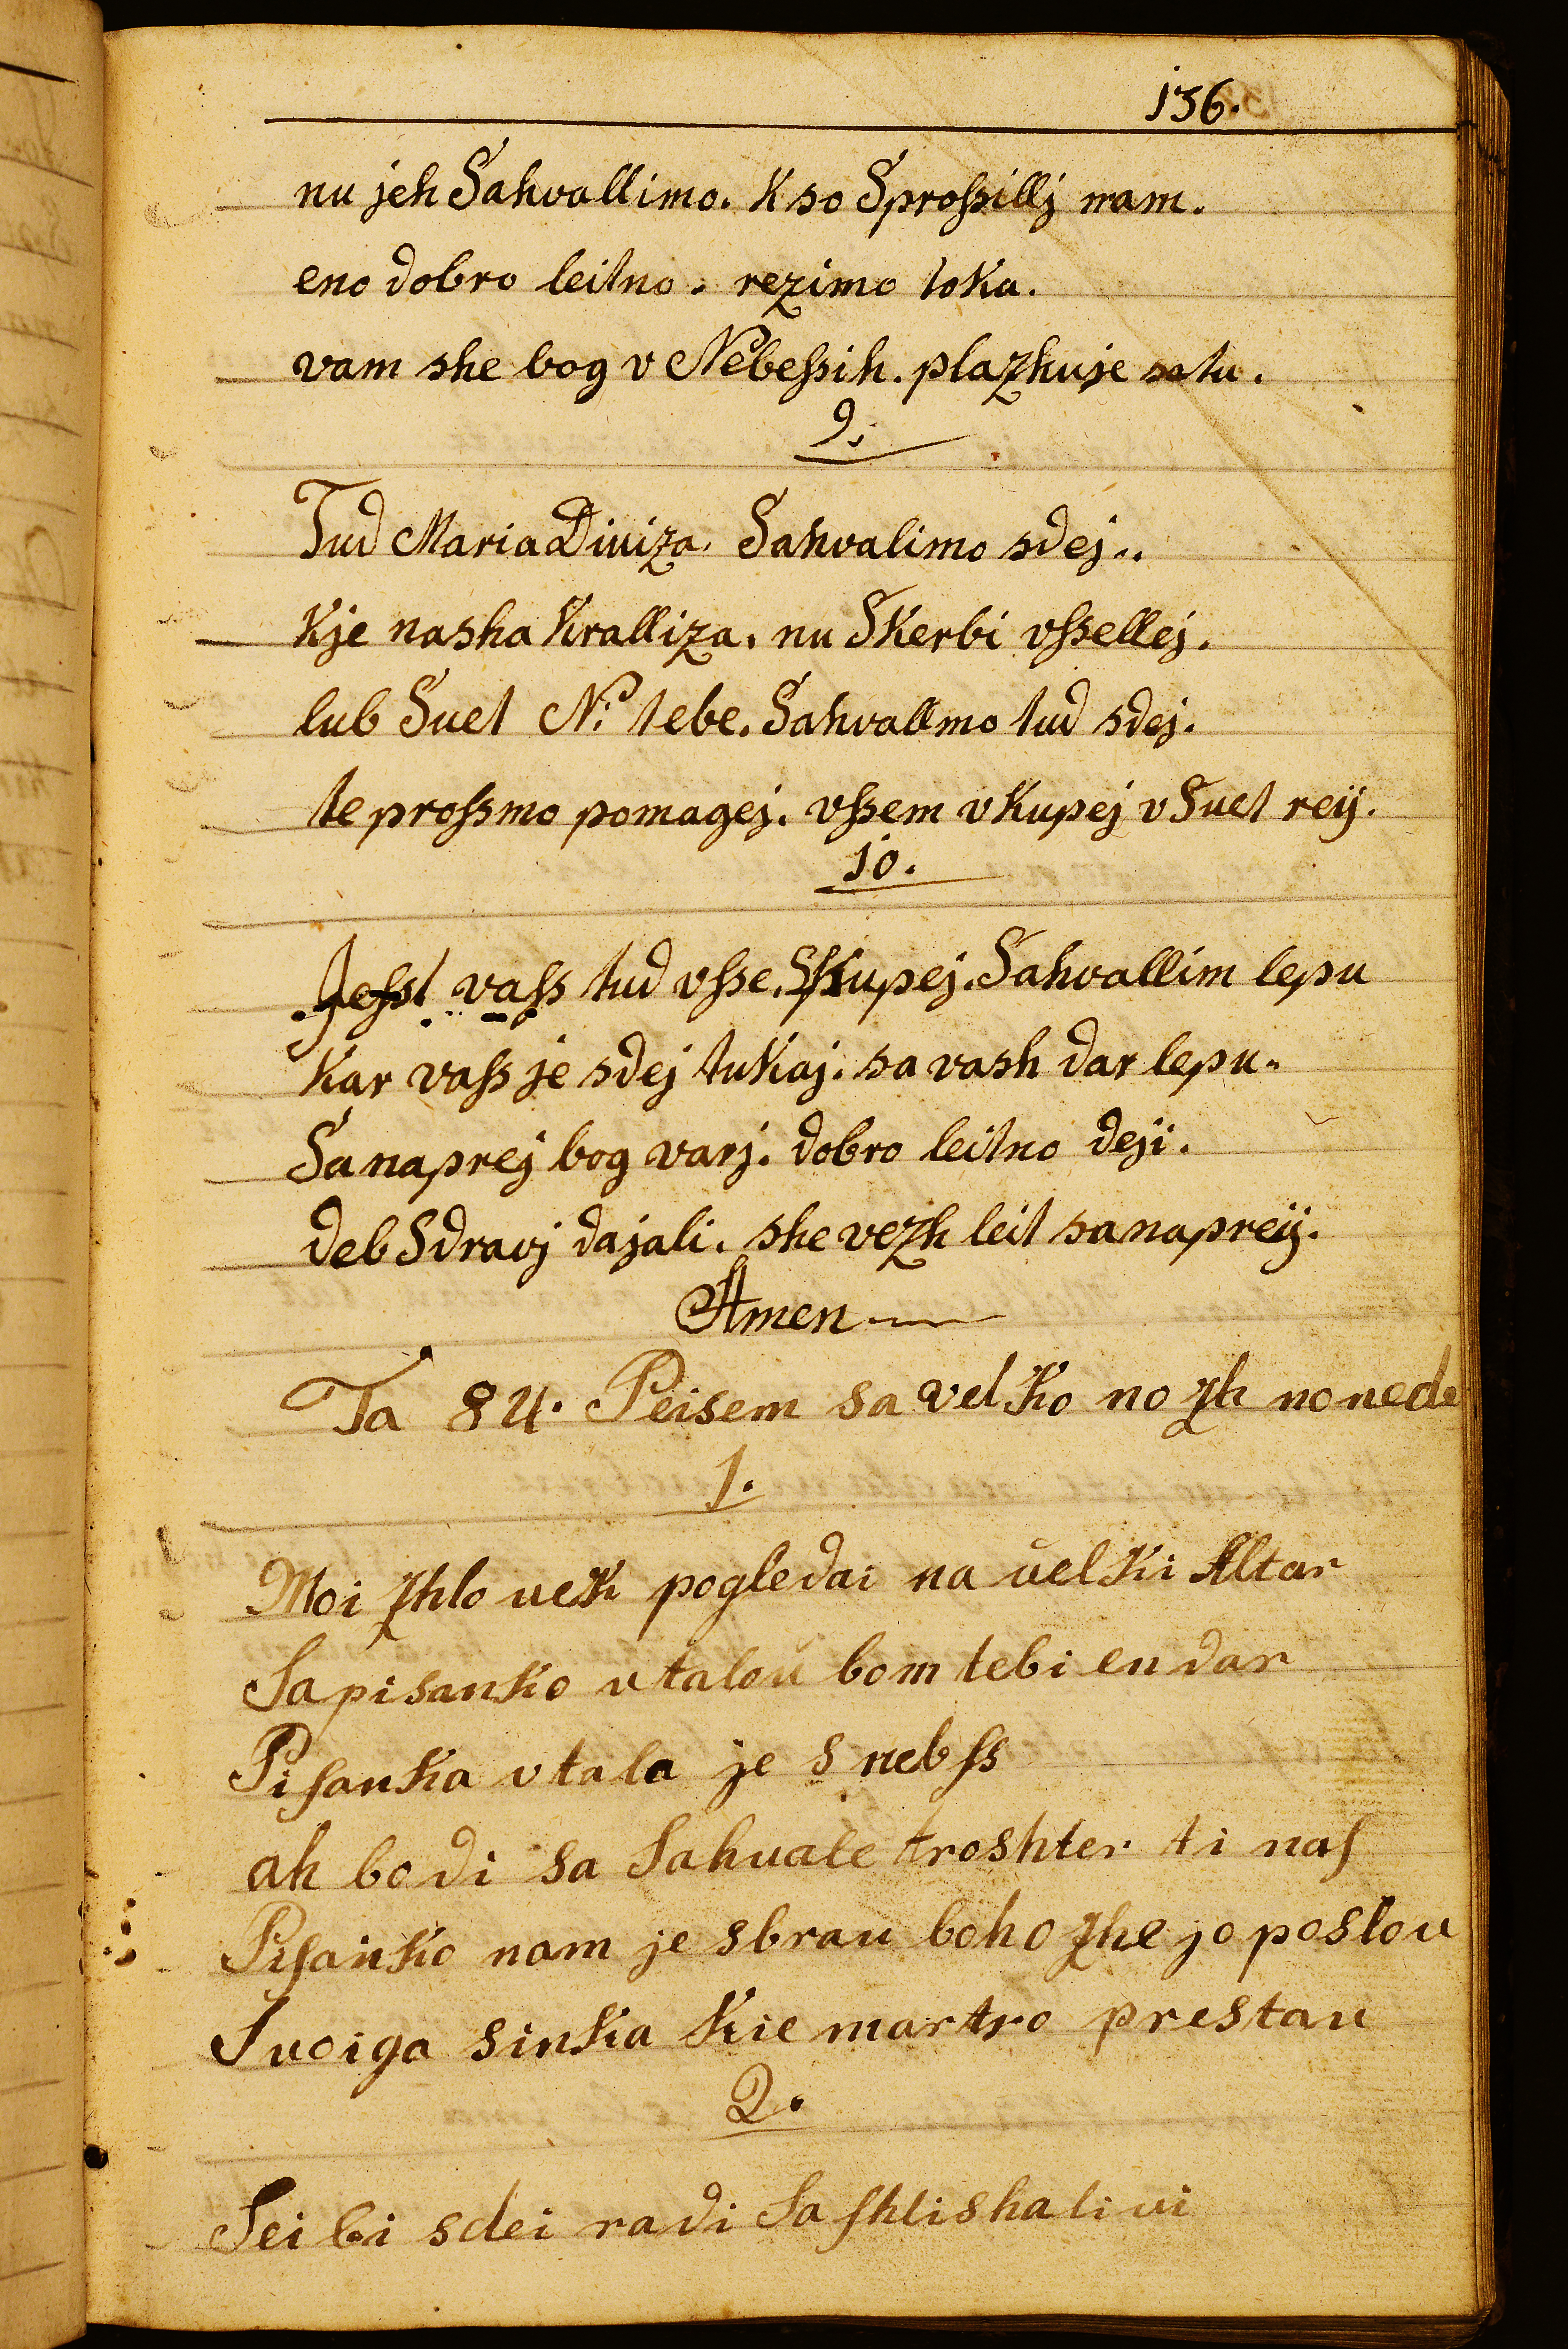 136.
nu jeh Sahvallimo. K so Sproſsillj nam.
eno dobro leitno. rezimo toka.
vam she bog v Nebeſsih. plazhuje sa tu.
9.
Tud Maria Diviza. Sahvalimo sdej..
Kje nasha Kralliza. nu SKerbi vſsellej.
lub Suet N: tebe. Sahvallmo tud sdej.
te proſsmo pomagej. vſsem vKupej v Suet reij.
10.
Jeſst vaſs tud vſse. SKupej. Sahvallim lepu
Kar vaſs je sdej tuKaj. sa vash dar lepu.
Sanaprej bog varj. dobro leitno deji.
deb Sdravj dajali. she vezh leit sanapreij.
Amen
Ta 84. Peisem sa velKo nozh no nede
1.
Moi zhloveK pogledai na velKi Altar
Sa pisanKo vtalou bom tebi en dar
PiſanKa vtala je s nebſs
ah bodi sa Sahuale troshter ti naſ
PiſanKo nam je sbrau boh ozhe jo poslou
Svoiga sinKa Kie martro prestau
2.
Sei bi sdei radi Saſhlishali vi